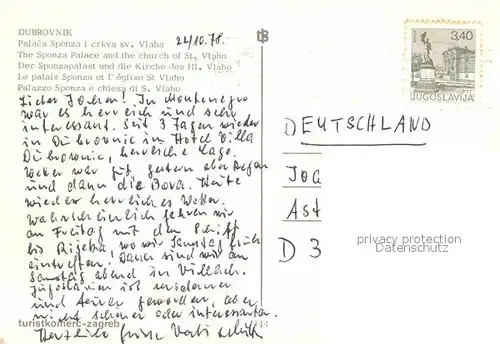 DUBROVNIK
Palača Sponza i crkva sv. Vlaha
The Sponza Palace and the church of St. Vlaho
Der Sponzapalast und die Kirche des Hl. Vlaho
Le palais Sponza et l' église St Vlaho
Palazzo Sponza e chiesa di S. Vlaho
22/10.78.
3,40
JUGOSLAVIJA
Lieber Jochen! In Montenegro
war es herrlich und sehr
interessant. Seit 3 Tagen wieder
in Dubrovnik im Hotel Villa
Dubrovnic, herrliche Lage.
Wetter war gut, gestern aber Regen
und dann die Bora. Heute
wieder herrliches Wetter.
Wahrscheinlich fahren wir
am Freitag mit dem Schiff
bis Rijeka, wo wir Samstag früh
eintreffen. Dann sind wir am
Samstag abend in Villach.
Jugoslavien ist
und teurer geworden, aber
nicht schöner oder interessanter.
Herzliche Grüsse
DEUTSCHLAND
Joa
Ast
D 3
privacy protection
Datenschutz
turistkomerc-zagreb